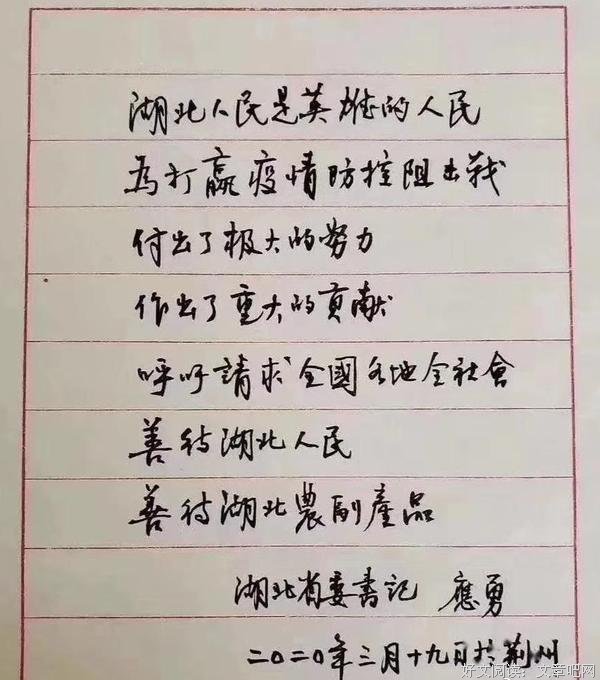 湖北人民是英雄的人民
為打贏疫情防控阻击戰
付出了极大的努力
作出了重大的貢献
呼吁請求全國各地全社會
善待湖北人民
善待湖北農副產品
湖北省委書记 應勇
二〇二〇年三月十九日於荆州
好文阅读：文章吧网